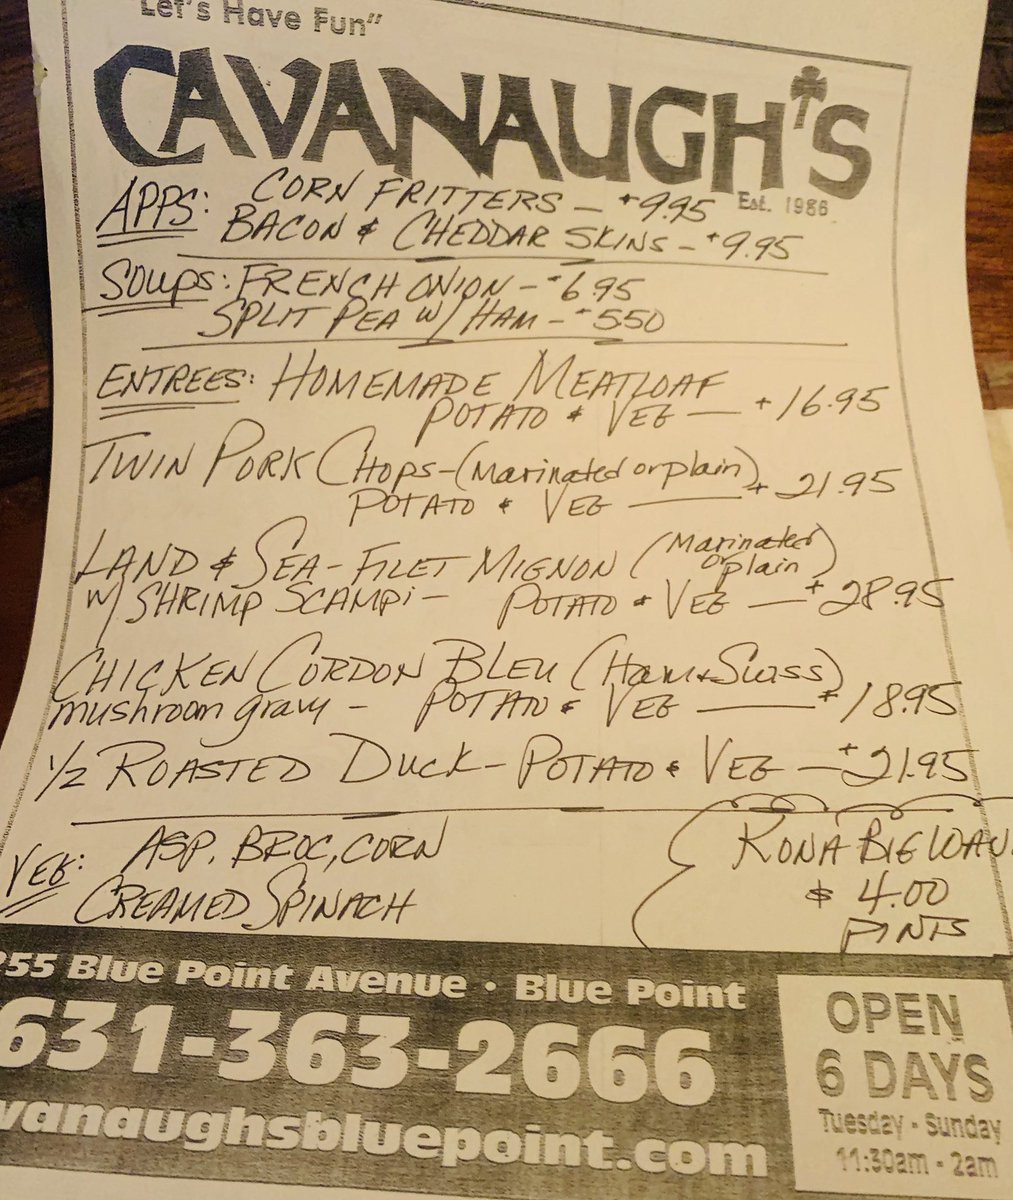 "Let's Have Fun"
CAVANAUGH'S
Est. 1986
APPS: CORN FRITTERS - $9.95
BACON & CHEDDAR SKINS - $9.95
SOUPS: FRENCH ONION - $6.95
SPLIT PEA W/ HAM - $5.50
ENTREES: HOMEMADE MEATLOAF
POTATO & VEG — $16.95
TWIN PORK CHOPS - (Marinated or plain)
POTATO & VEG — $21.95
LAND & SEA - FILET MIGNON (Marinated or plain)
W/ SHRIMP SCAMPI - POTATO & VEG — $28.95
CHICKEN CORDON BLEU (Ham & Swiss)
mushroom gravy - POTATO & VEG — $18.95
1/2 ROASTED DUCK - POTATO & VEG — $21.95
VEG: ASP, BROC, CORN
CREAMED SPINACH
KONA BIG WAV
$4.00
PINTS
255 Blue Point Avenue • Blue Point
631-363-2666
vanaughsbluepoint.com
OPEN
6 DAYS
Tuesday - Sunday
11:30am - 2am